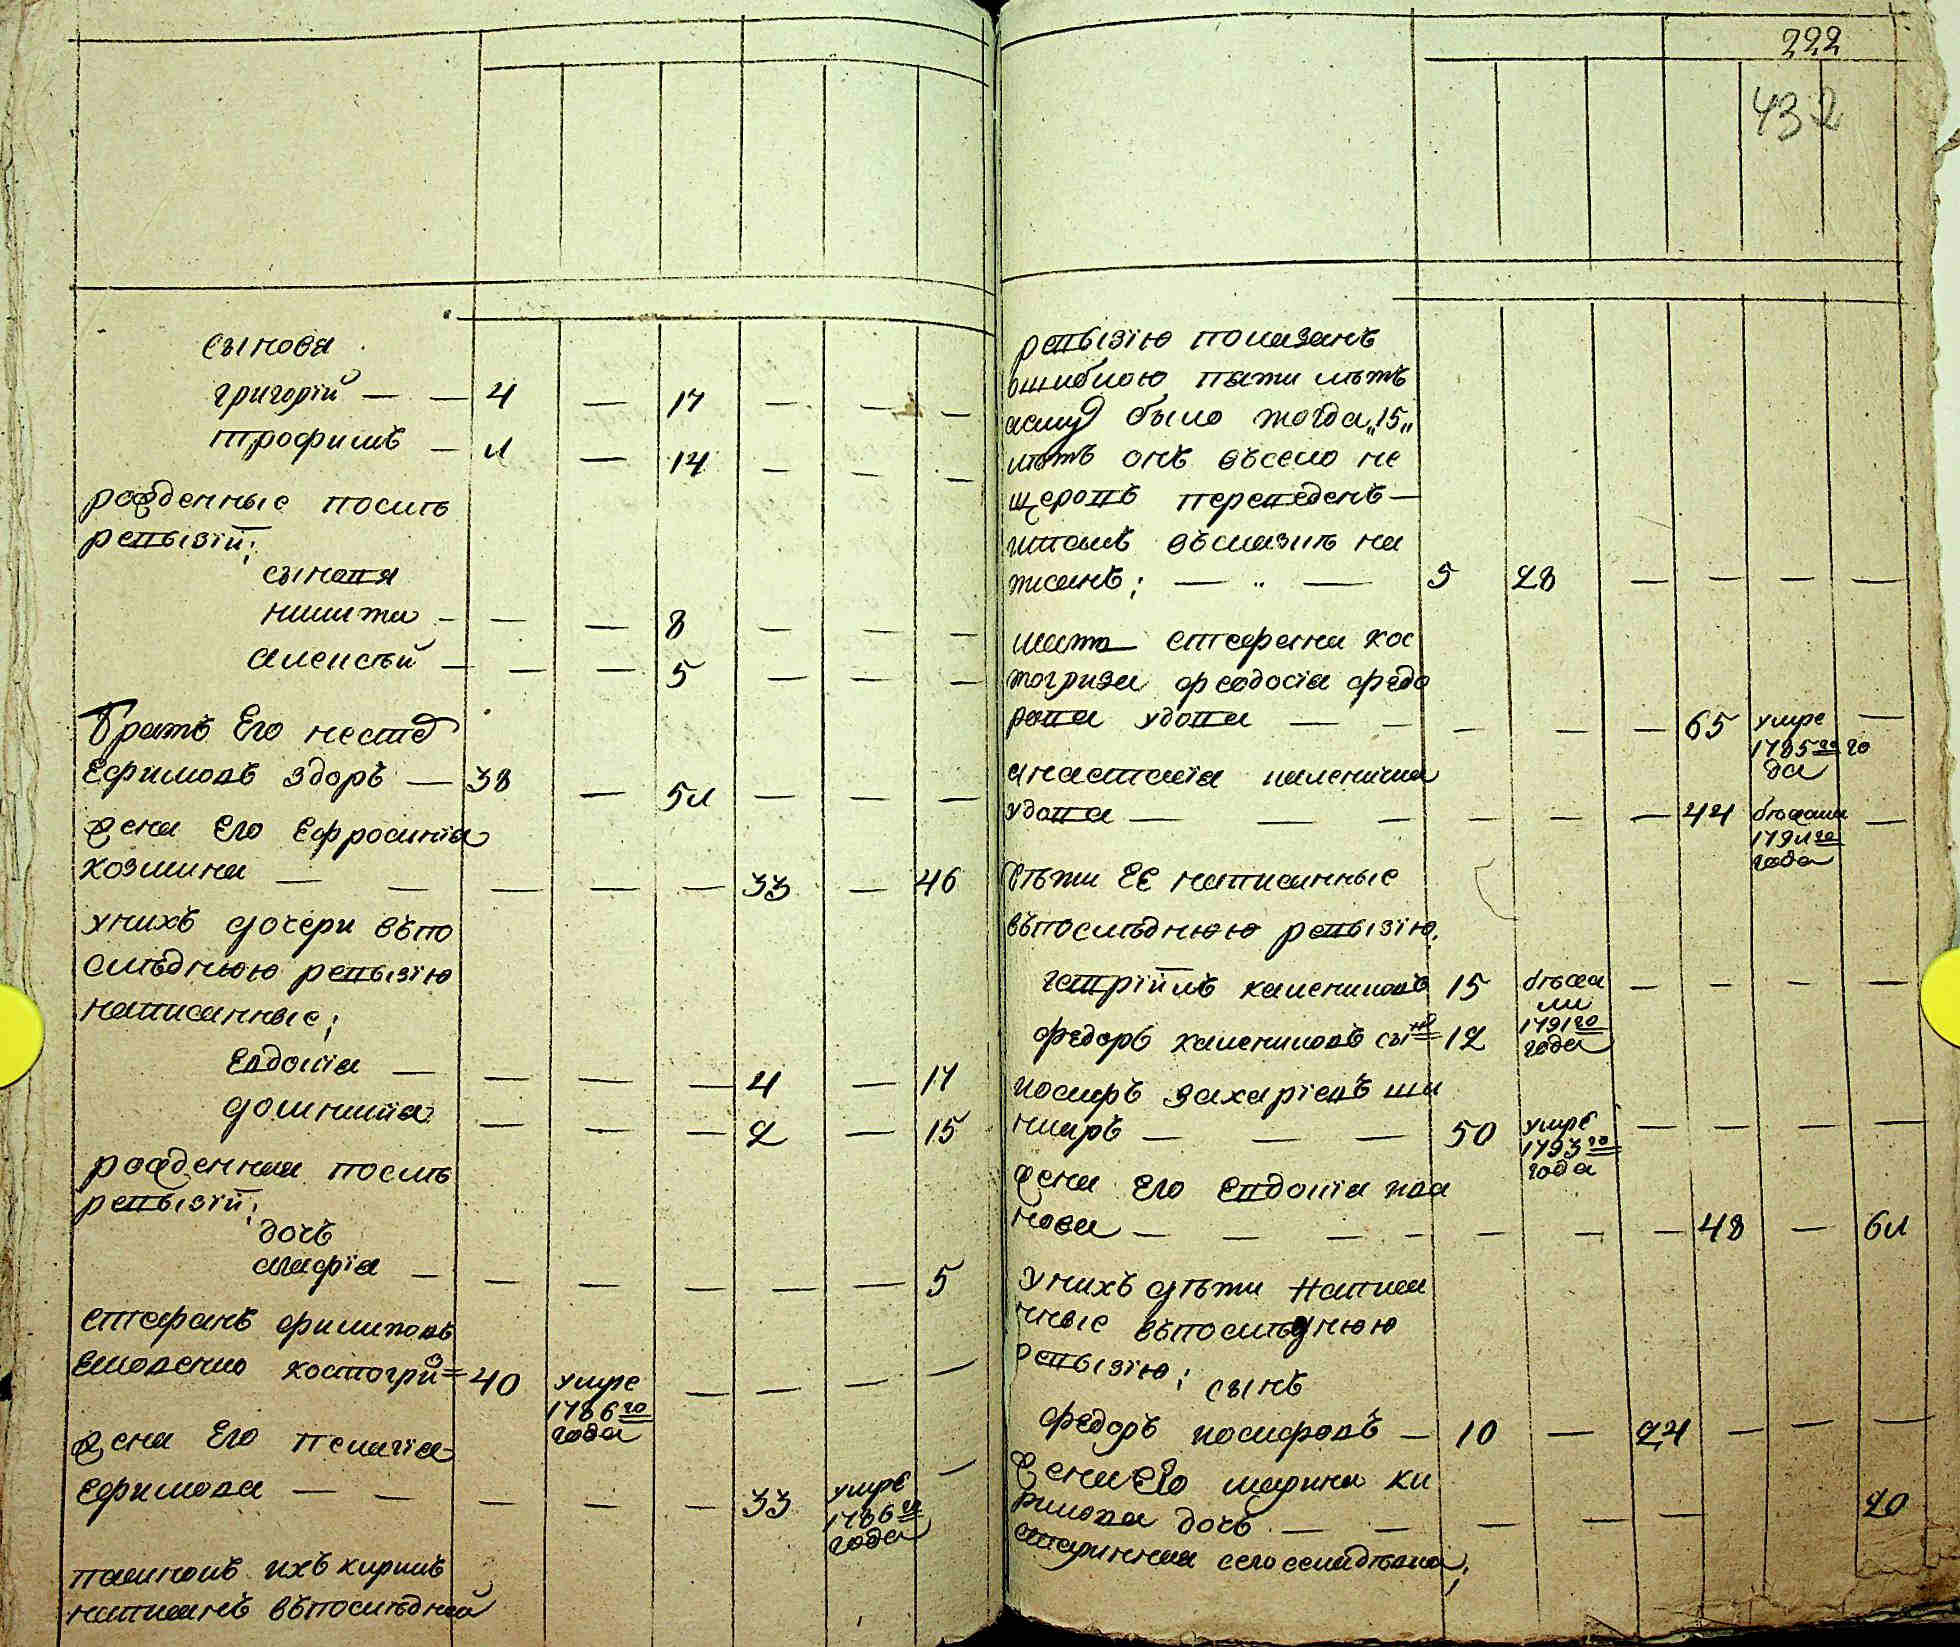 сынова
григорій — — 4 — 17 — — —
трофимъ — 1 — 14 — — —
рожденные послѣ
ревизіи;
сыновя
никита — — — 8 — — —
алексѣй — — — 5 — — —
братъ его
ефимовъ здоръ — 38 — 51 — — —
жена его ефросинїа
козмина — — — — — 33 — 46
унихъ дочери въпо
слѣднюю ревизїю
написанные;
евдокїа — — — — 4 — 17
домникїа — — — 2 — 15
рожденная послѣ
ревизіи;
дочь
агафїа — — — — — — 5
стефанъ филиповъ
костогриз= 40 умре — — — —
1786го
года
жена его пелагїа
ефимова — — — — — 33 умре —
1786го
года
пасинокъ ихъ кирилъ
написанъ въпослѣдней
222
432
ревизїю показанъ
ошибкою пяти лѣтъ
аему было тогда „15„
лѣтъ онъ въсело не
щеровъ переведенъ —
итамъ въсказкѣ на
писанъ; — „ — 5 28 — — — —
мать стефана кос
тогриза феодосїа федо
рова удова — — — — — 65 умре —
1785го го
да
анастасїа каленикова
удова — — — — — — 44 бѣжали —
1791го
года
дѣти ее написанные
въпослѣднюю ревизїю;
гаврїилъ калениковъ 15 бѣжа — — — —
ли
1791го
года
федоръ калениковъ сынъ= 12
иосифъ захарїевъ ши
нкаръ — — — 50 умре — — — —
1793го
года
жена его евдокїа ива
нова — — — — — — — 48 — 61
унихъ дѣти написа
нные въпослѣднюю
ревизїю; сынъ
федоръ иосифовъ — 10 — 24 — — —
жена его марина ки
рилова дочь — — — — — 20
старинная сего селидѣвка;